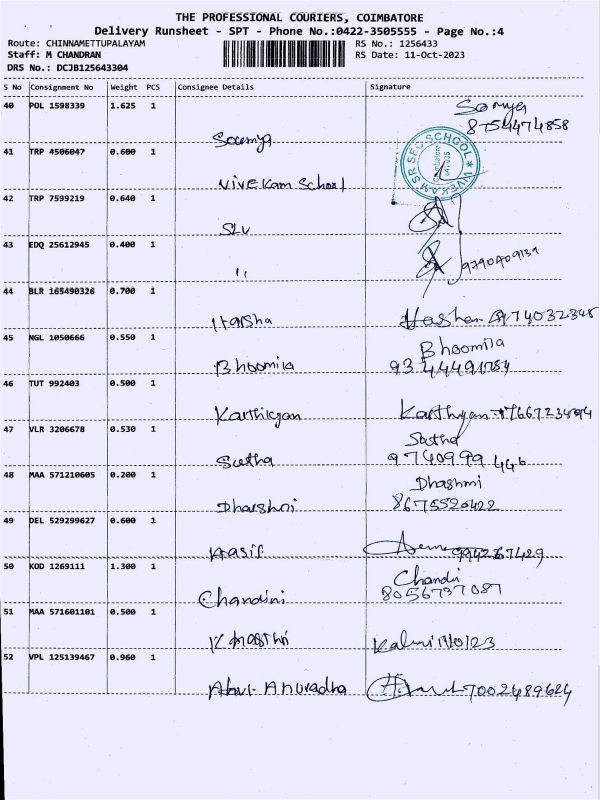 THE PROFESSIONAL COURIERS, COIMBATORE
Delivery Runsheet - SPT - Phone No.:0422-3505555 - Page No.:4
Route: CHINNAMETTUPALAYAM RS No.: 1256433
Staff: M CHANDRAN RS Date: 11-Oct-2023
DRS No.: DCJB125643304
S No Consignment No Weight PCS Consignee Details Signature
40 POL 1598339 1.625 1 Somya
8754474858
Soumya
41 TRP 4506047 0.600 1 VIVEKAM SR SEC SCHOOL
Vivekam School
42 TRP 7599219 0.640 1
SLV
43 EDQ 25612945 0.400 1
"
44 BLR 165490326 0.700 1
Harsha
45 NGL 1050666 0.550 1 Bhoomila
Bhoomila
46 TUT 992403 0.500 1
Karthikyan Karthyan
47 VLR 3206678 0.530 1 Sutha
Sutha 9740999446
48 MAA 571210605 0.200 1 Dhashmi
Dharshni 8675520422
49 DEL 529299627 0.600 1
Aasif
50 KOD 1269111 1.300 1 Chandi
Chandini 8056737087
51 MAA 571601101 0.500 1
52 VPL 125139467 0.960 1
Anuradha 7002489624